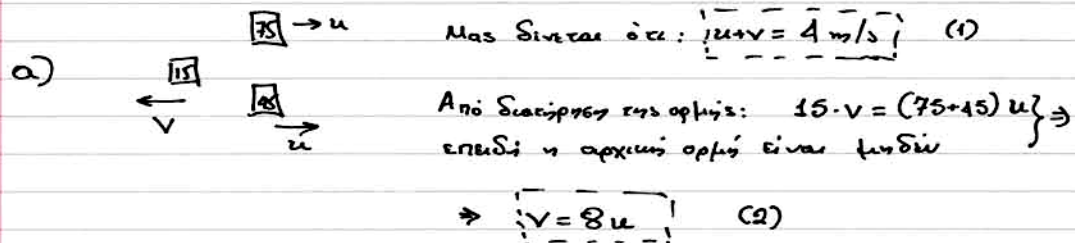 75 → u Μας δίνεται ότι: u+v = 4 m/s (1)
α) 15
← v 45 → u Από διατήρηση της ορμής: 15·v = (75+45) u } ⇒
επειδή η αρχική ορμή είναι μηδέν
⇒ v = 8u (2)